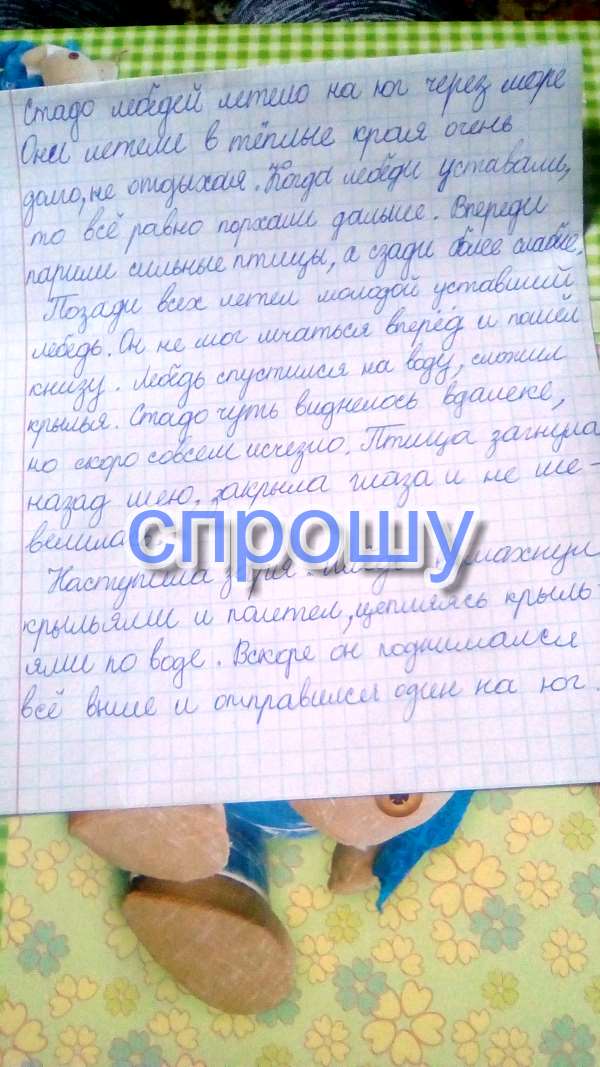 Стадо лебедей летело на юг через море
Они летели в тёплые края очень
долго, не отдыхая. Когда лебеди уставали,
то всё равно порхали дальше. Впереди
парили сильные птицы, а сзади более слабые.
Позади всех летел молодой уставший
лебедь. Он не мог мчаться вперёд и пошёл
книзу. Лебедь спустился на воду, сложил
крылья. Стадо чуть виднелось вдалеке,
но скоро совсем исчезло. Птица загнула
назад шею, закрыла глаза и не ше-
спрошу
Наступила
крыльями и полетел, цепляясь крыль-
ями по воде. Вскоре он поднимался
всё выше и отправился один на юг.